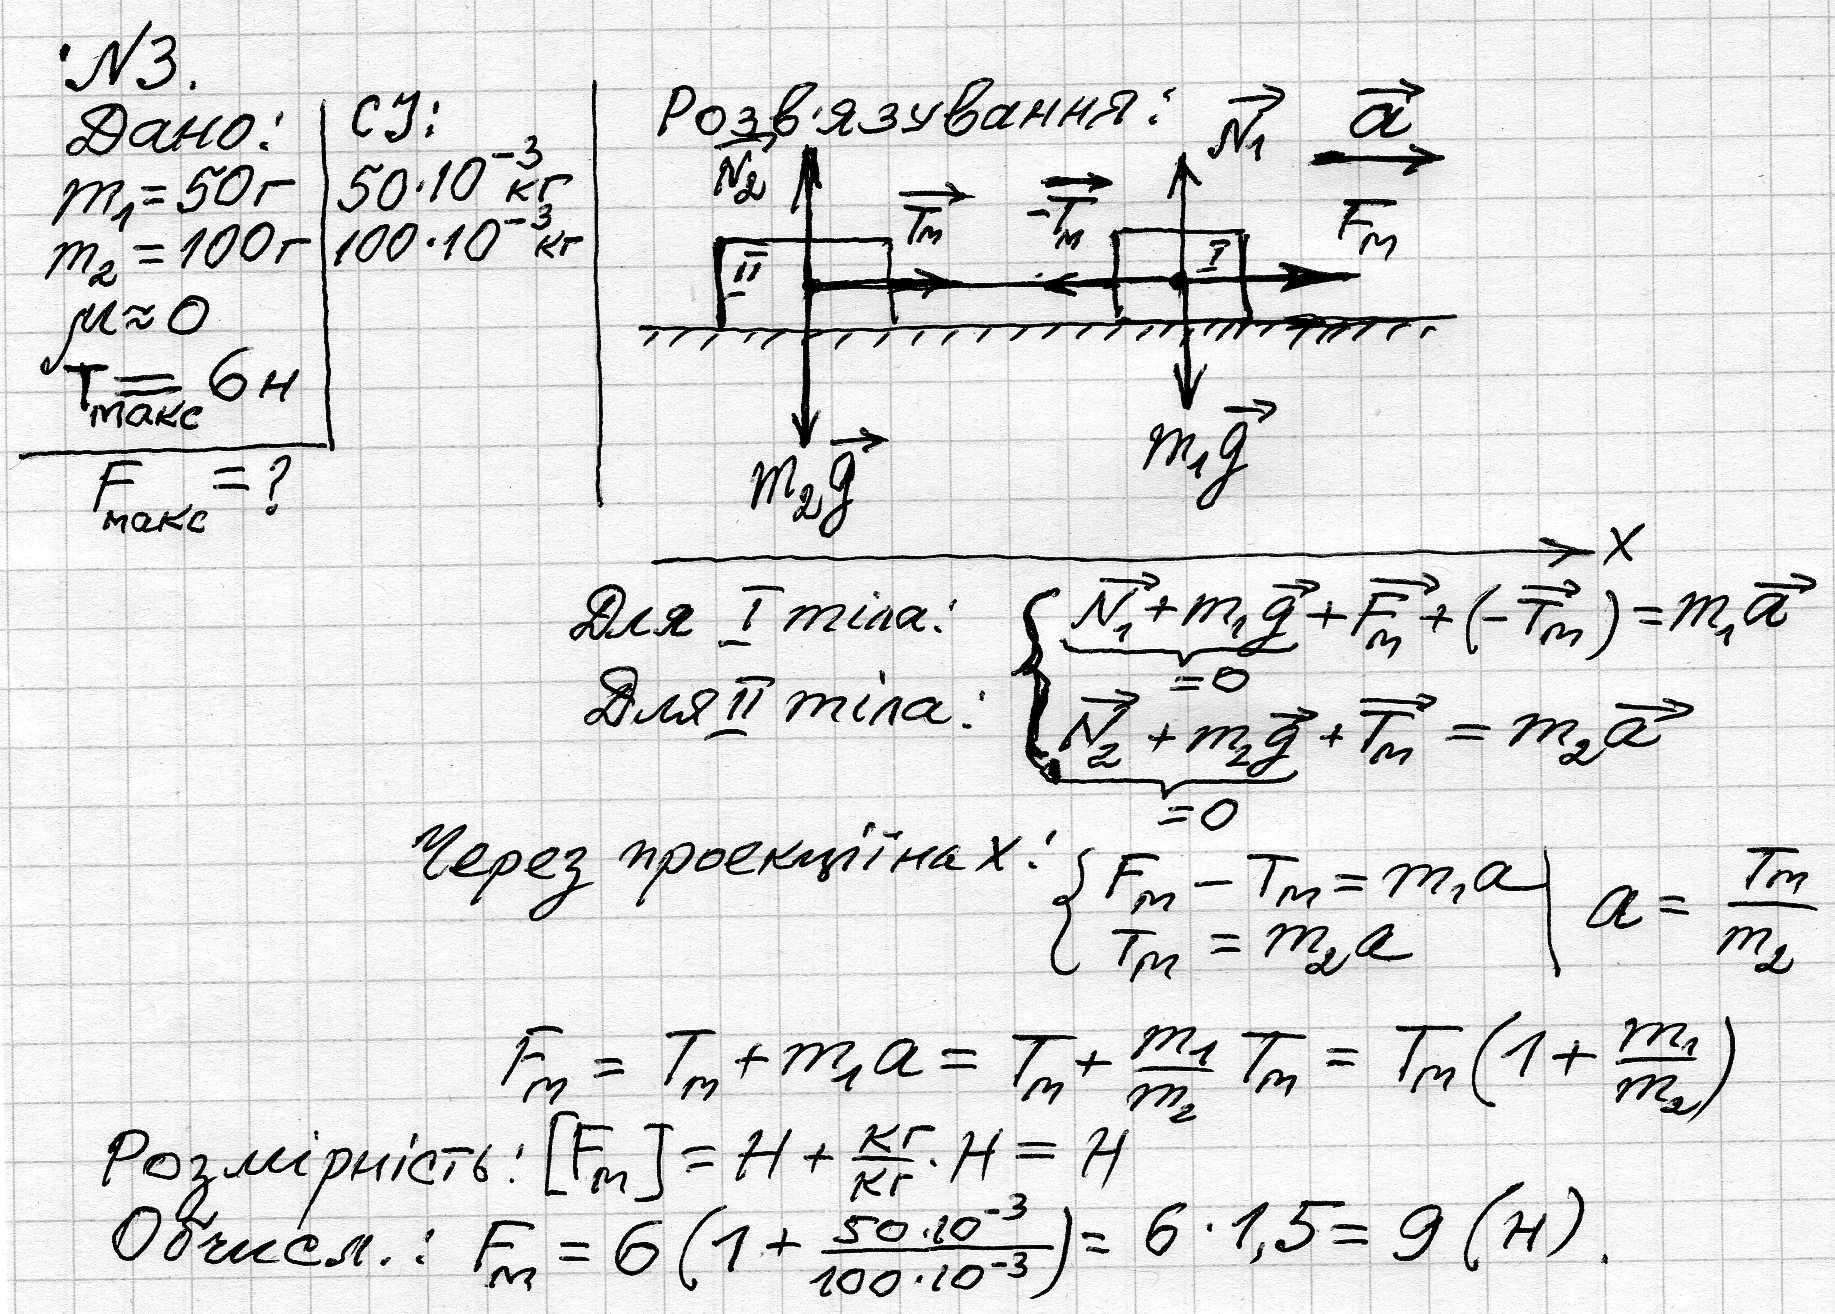 N3.
Дано:
m₁ = 50г
m₂ = 100г
μ ≈ 0
Tмакс = 6н
Fмакс = ?
СІ:
50·10⁻³ кг
100·10⁻³ кг
Розв'язування:
N₂ Tм -Tм N₁ a Fм
II I
m₂g m₁g
x
Для I тіла: { N₁ + m₁g + Fм + (-Tм) = m₁a
= 0
Для II тіла: N₂ + m₂g + Tм = m₂a
= 0
Через проекції на x: { Fм - Tм = m₁a | a = Tм/m₂
Tм = m₂a
Fм = Tм + m₁a = Tм + m₁/m₂ Tм = Tм (1 + m₁/m₂)
Розмірність: [Fм] = Н + кг/кг · Н = Н
Обчисл.: Fм = 6 (1 + 50·10⁻³/100·10⁻³) = 6·1,5 = 9 (н).